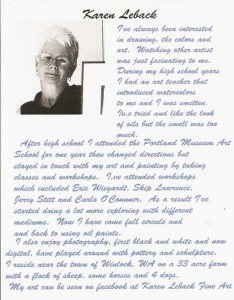 Karen Leback
I've always been interested
in drawing, the colors and
art. Watching other artist
was just facinating to me.
During my high school years
I had an art teacher that
introduced watercolors
to me and I was smitten.
I've tried and like the look
of oils but the smell was too
much.
After high school I attended the Portland Museum Art
School for one year then changed directions but
stayed in touch with my art and painting by taking
classes and workshops. I've attended workshops
which included Eric Wiegardt, Skip Lawrence,
Jerry Stitt and Carla O'Connor. As a result I've
started doing a lot more exploring with different
mediums. Now I have come full circule and
and back to using oil paints.
I also enjoy photography, first black and white and now
digital, have played around with pottery and schulpture.
I reside near the town of Winlock, WA on a 33 acre farm
with a flock of sheep, some horses and 4 dogs.
My art can be seen on facebook at Karen Leback Fine Art